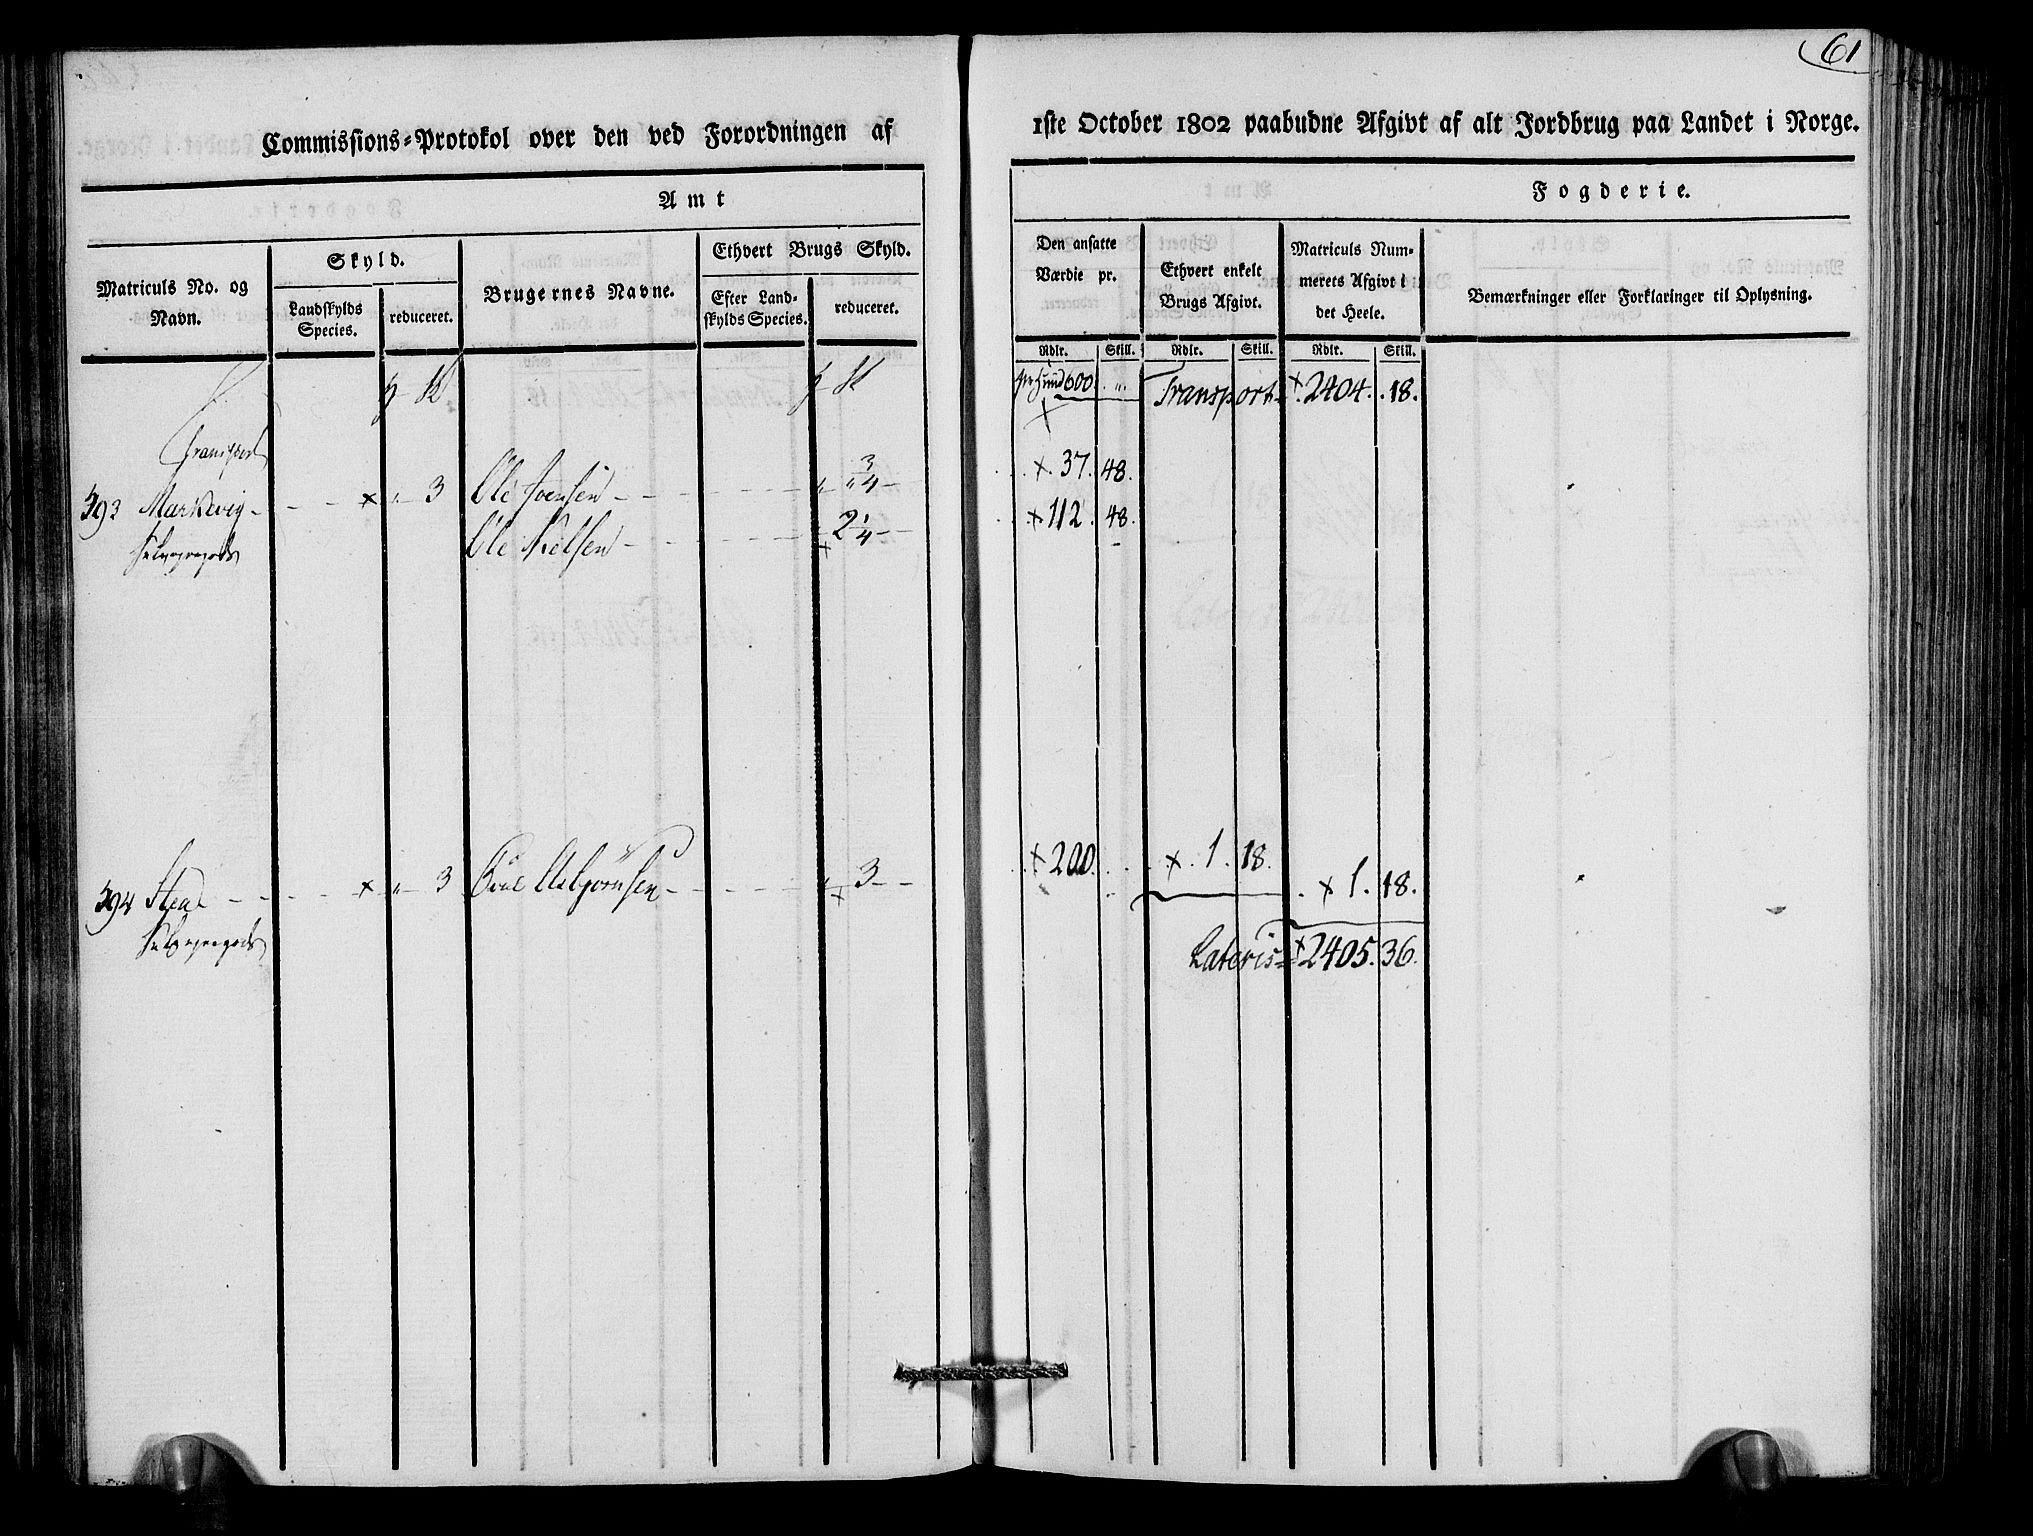 61
Commissions-Protokol over den ved Forordningen af
1ste October 1802 paabudne Afgivt af alt Jordbrug paa Landet i Norge.
Amt
Fogderie.
Matriculs No. og Navn.
Skyld.
Landskylds Species.
reduceret.
Brugernes Navne.
Ethvert Brugs Skyld.
Efter Landskylds Species.
reduceret.
Den ansatte Værdie pr.
Ethvert enkelt Brugs Afgivt.
Matriculs Nummerets Afgivt i det Heele.
Bemærkninger eller Forklaringer til Oplysning.
Rdlr. Skill. Rdlr. Skill. Rdlr. Skill.
600 " Transport 2404. 18.
Transport
393 Markevig - - - × " 3 Ole Ivensen - - - " " 3/4 - × 37. 48.
Selveyergods Ole Nielsen - - - × 2 1/4 - × 112. 48.
394 Stea - - - × " 3 Asbjørnsen - - - " 3 - - × 200. × 1. 18.
× 1. 18.
Selveyergods
Lateris × 2405. 36.